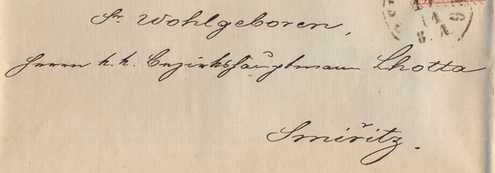 Sr. Wohlgeboren,
Herrn k. k. Bezirkshauptmann Lhotta
Smiřitz.